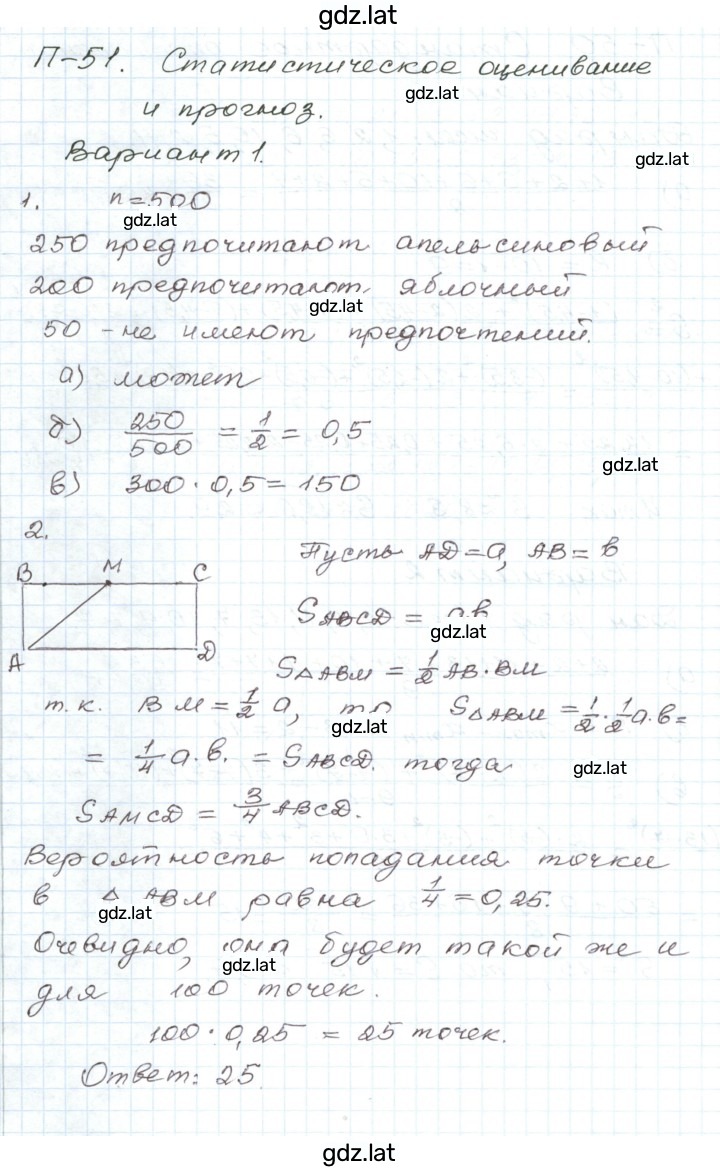 gdz.lat
П-51. Статистическое оценивание
gdz.lat
и прогноз.
Вариант 1.
gdz.lat
1. n = 500
gdz.lat
250 предпочитают апельсиновый
200 предпочитают яблочный
gdz.lat
50 - не имеют предпочтений.
а) может
б) 250/500 = 1/2 = 0,5
gdz.lat
в) 300 · 0,5 = 150
2.
Пусть AD = a, AB = b
B M C
A D
SABCD = ab
gdz.lat
S△ABM = 1/2 AB · BM
т.к. BM = 1/2 a, то S△ABM = 1/2 · 1/2 a · b =
gdz.lat
= 1/4 a · b. = SABCD. тогда
gdz.lat
SAMCD = 3/4 ABCD.
Вероятность попадания точки
в △ ABM равна 1/4 = 0,25.
gdz.lat
Очевидно, она будет такой же и
gdz.lat
для 100 точек.
100 · 0,25 = 25 точек.
Ответ: 25
gdz.lat